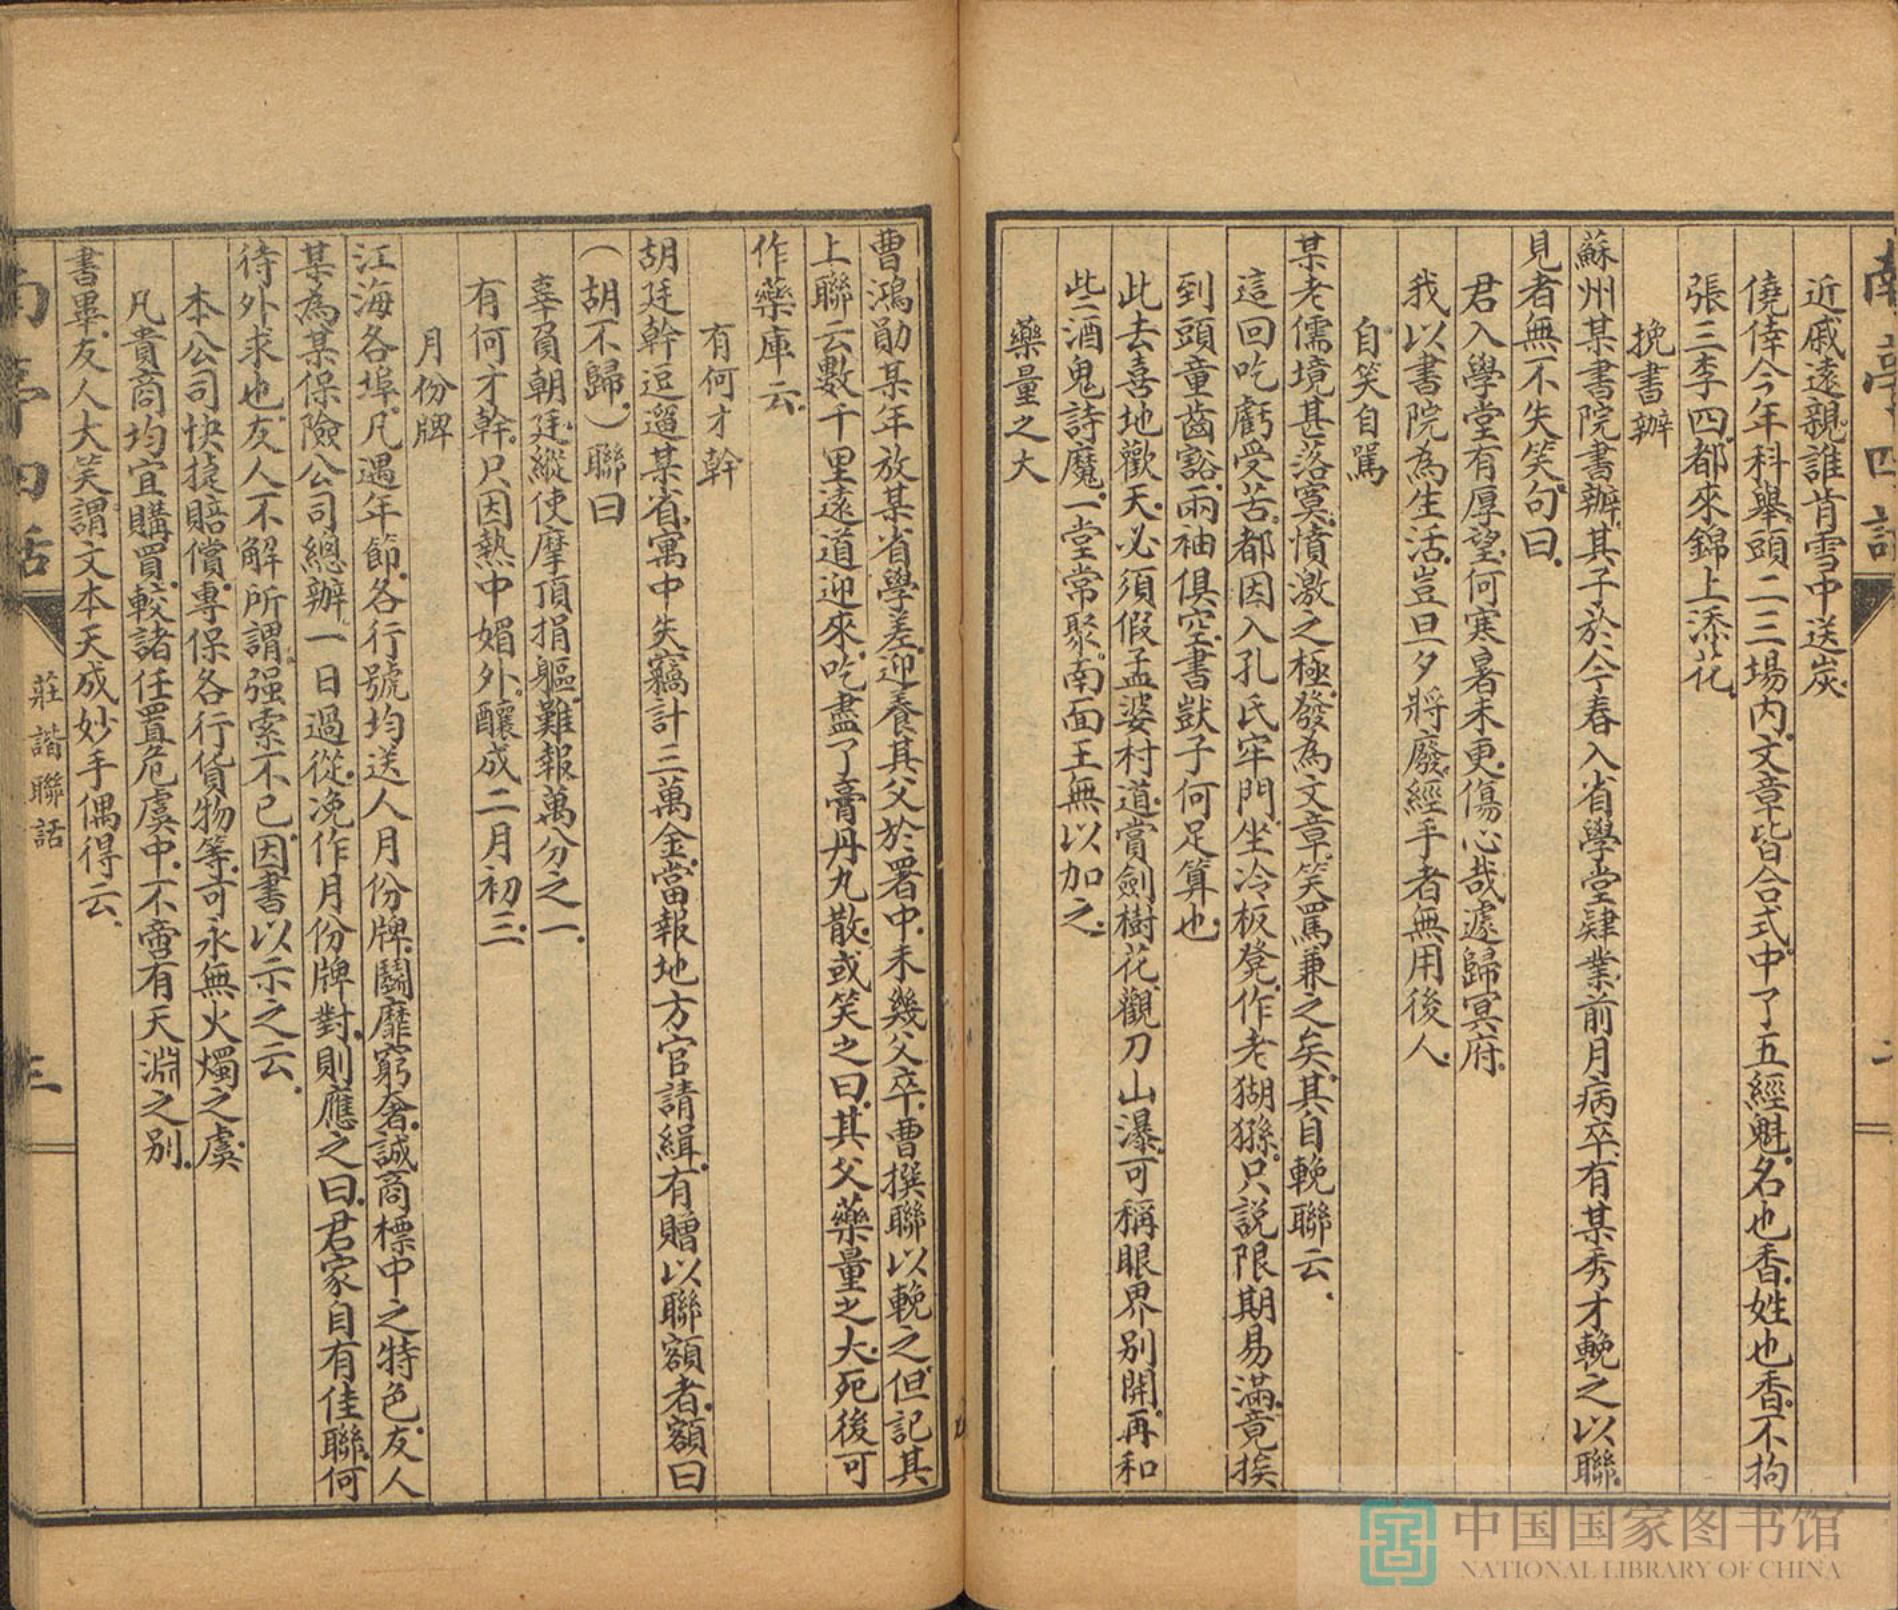 南亭四話
近戚遠親誰肯雪中送炭.
僥倖今年科舉頭二三場內.文章皆合式.中了五經魁.名也香.姓也香.不拘
張三李四.都來錦上添花.
挽書辦
蘇州某書院書辦.其子於今春入省學堂肄業.前月病卒.有某秀才輓之以聯.
見者無不失笑.句曰.
君入學堂有厚望.何寒暑未更.傷心哉遽歸冥府.
我以書院為生活.豈旦夕將廢.經手者無用後人.
自笑自罵
某老儒境甚落寞.憤激之極.發為文章.笑罵兼之矣.其自輓聯云.
這回吃虧受苦.都因入孔氏牢門.坐冷板凳.作老猢猻.只說限期易滿.竟挨
到頭童齒豁.兩袖俱空.書獃子何足算也.
此去喜地歡天.必須假孟婆村道.賞劍樹花.觀刀山瀑.可稱眼界別開.再和
些酒鬼詩魔.一堂常聚.南面王無以加之.
藥量之大
曹鴻勛某年放某省學差.迎養其父於署中.未幾父卒.曹撰聯以輓之.但記其
上聯云.數千里遠道迎來.吃盡了膏丹丸散.或笑之曰.其父藥量之大.死後可
作藥庫云.
有何才幹
胡廷幹逗遛某省.寓中失竊.計三萬金.當報地方官請緝.有贈以聯額者.額曰
(胡不歸.)聯曰
辜負朝廷.縱使摩頂捐軀.難報萬分之一.
有何才幹.只因熱中媚外.釀成二月初三.
月份牌
江海各埠.凡遇年節.各行號均送人月份牌.鬭靡窮奢.誠商標中之特色.友人
某為某保險公司總辦.一日過從.浼作月份牌對.則應之曰.君家自有佳聯.何
待外求也.友人不解所謂.强索不已.因書以示之云.
本公司快捷賠償.專保各行貨物等.可永無火燭之虞
凡貴商均宜購買.較諸任置危虞中.不啻有天淵之別.
書畢.友人大笑.謂文本天成.妙手偶得云.
南亭四話
莊諧聯話
三
中国国家图书馆
NATIONAL LIBRARY OF CHINA